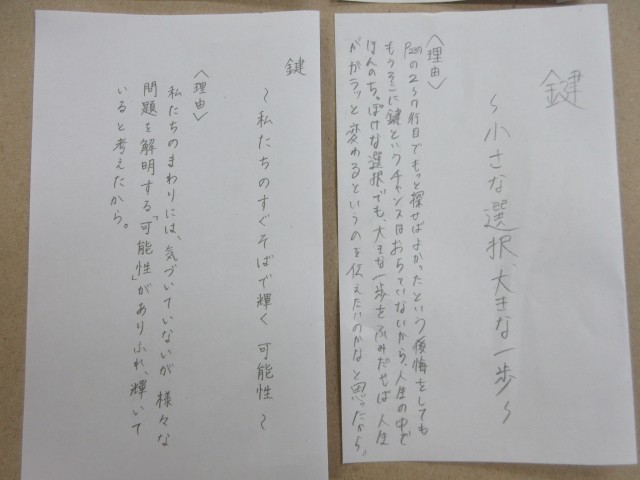 鍵
～小さな選択、大きな一歩～
〈理由〉
P237の2～7行目でもっと探せばよかったという後悔をしても
もうそこに鍵というチャンスはおちていないから、人生の中で
ほんのちっぽけな選択でも、大きな一歩をふみだせば人生
がガラッと変わるというのを伝えたいのかなと思ったから。
鍵
～私たちのすぐそばで輝く可能性～
〈理由〉
私たちのまわりには、気づいていないが様々な
問題を解明する「可能性」がありふれ、輝いて
いると考えたから。